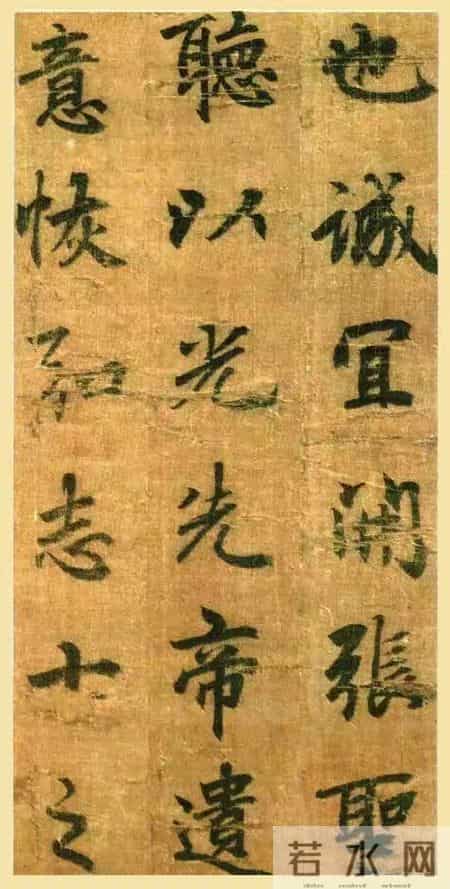 也誠宜開張聖
聽以光先帝遺
意恢弘志士之
若水网